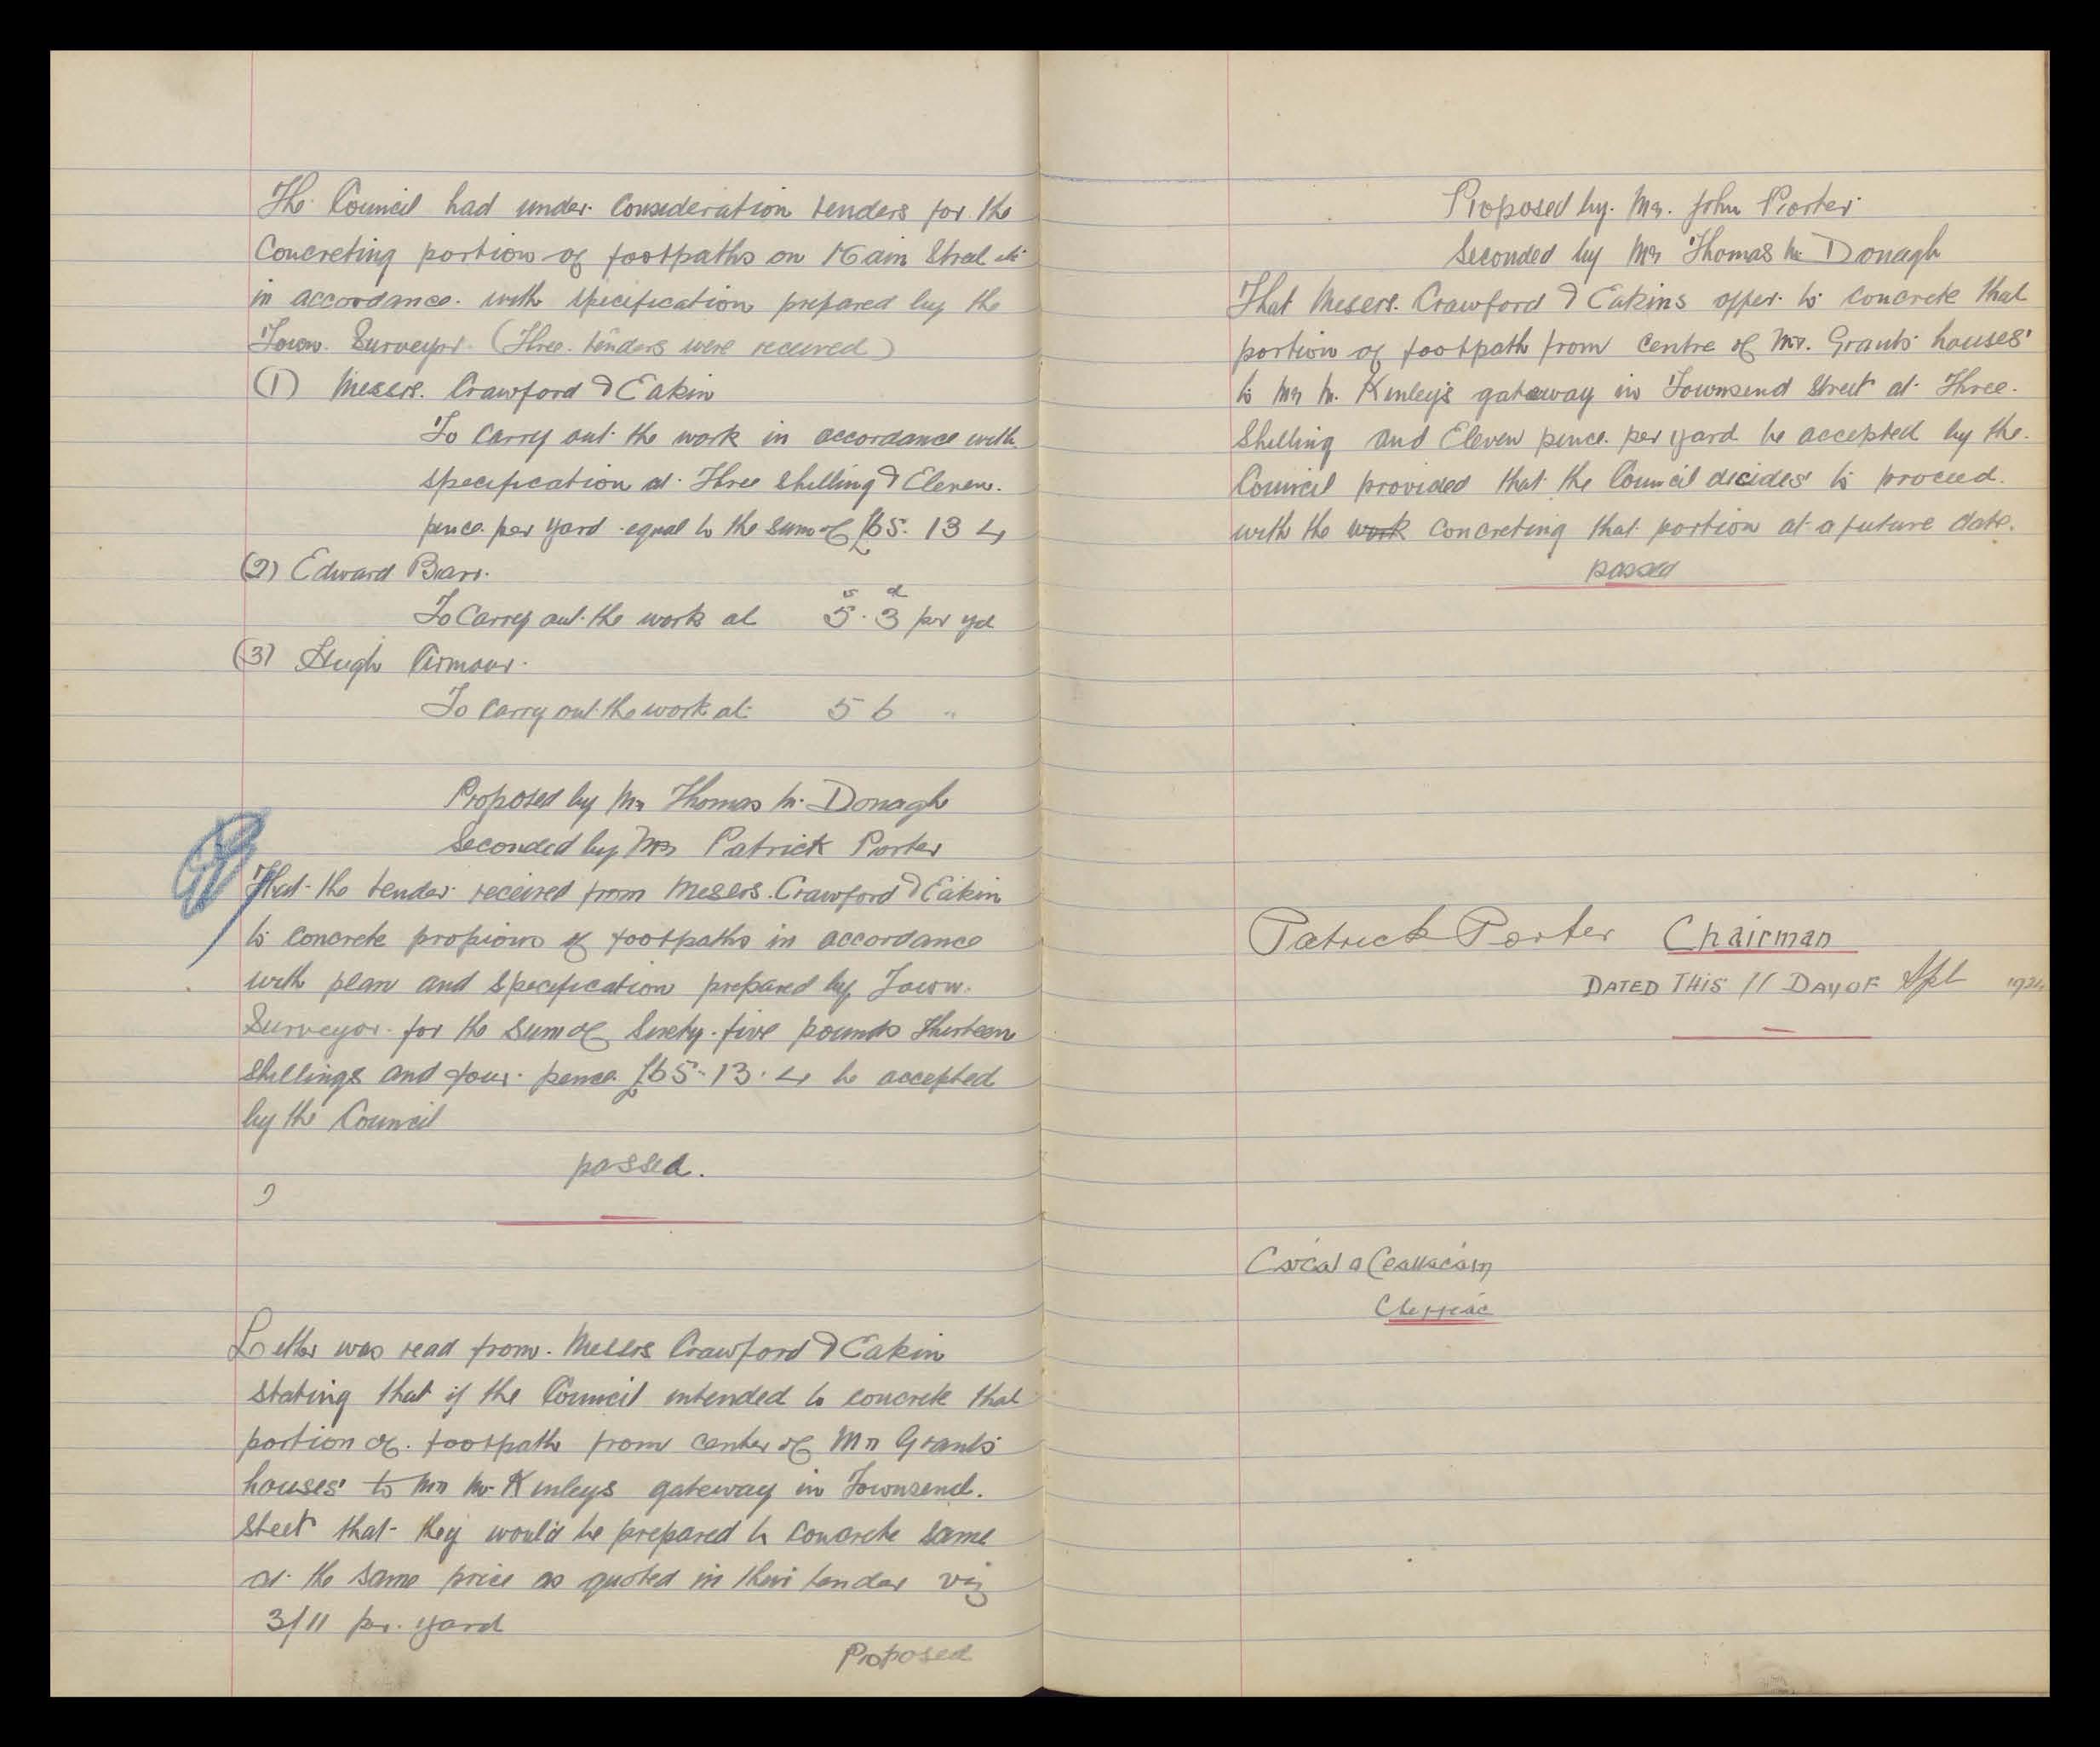 The Council had under Consideration tenders for the
Concreting portion of footpaths on Main Street etc
in accordance with specification prepared by the
Town Surveyor. (Three tenders were received)
(1) Messrs. Crawford & Eakin
To Carry out the work in accordance with
specification at Three Shilling & Eleven
pence per yard equal to the sum of £65. 13 4
(2) Edward Barr.
s d
To Carry out the work at 5. 3 per yd
(3) Hugh Armour.
To Carry out the work at 5 6 "
Proposed by Mr Thomas Mc Donagh
Seconded by Mr Patrick Porter
That the tender received from Messrs. Crawford & Eakin
to concrete propions of footpaths in accordance
with plan and specification prepared by Town
Surveyor for the sum of Sixty five pounds Thirteen
Shillings and four pence £65-13.4 be accepted
by the Council
passed.
Letter was read from Messrs Crawford & Eakin
stating that if the Council intended to concrete that
portion of footpath from center of Mr Grants
houses to Mr Mc Kinleys gateway in Townsend
Steet that they would be prepared to concrete same
at the same price as quoted in their tender viz
3/11 per yard
Proposed
Proposed by Mr. John Porter
Seconded by Mr Thomas Mc Donagh
That Messrs. Crawford & Eakins offer to concrete that
portion of footpath from centre of Mr. Grants houses
to Mr Mc Kinleys gateway in Townsend Street at Three
Shilling and Eleven pence per yard be accepted by the
Council provided that the Council decides to proceed
with the work concreting that portion at a future date.
passed
Patrick Porter Chairman
DATED THIS 11 DAY OF Sept
Cacal o Ceallacáin